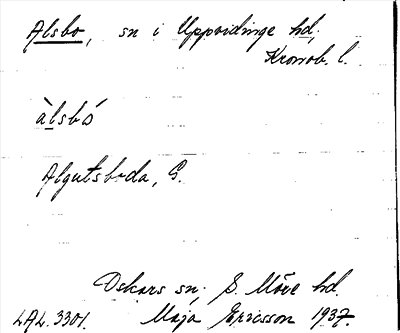 Alsbo, sn i Uppvidinge hd,
Kronob. l.
àlsbó
Algutsboda, G.
Oskars sn; S. Möre hd.
LAL. 3301. Maja Ericsson 1937